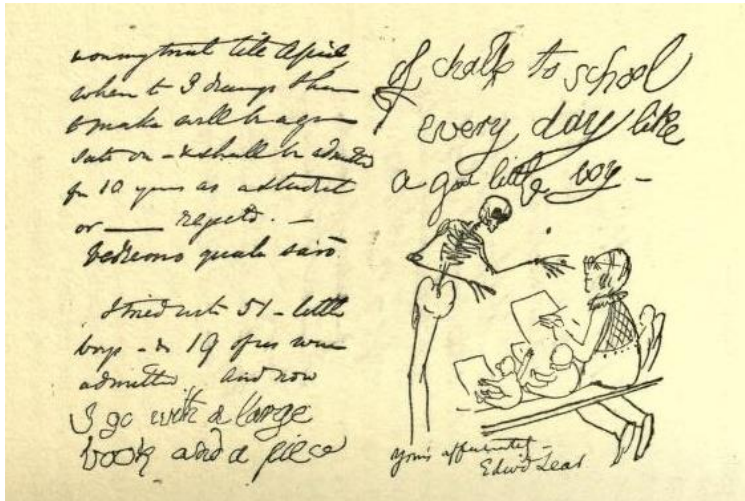 till April
when the 3 drawings I have
to make will be again
sate on - & I shall be admitted
for 10 years as a student
or — rejected. —
Vedremo quale sarò.
I tried with 51 - little
boys - & 19 of us were
admitted, and now
I go with a large
book and a piece
of chalk to school
every day like
a good little boy -
Yours affectionately -
Edwd Lear